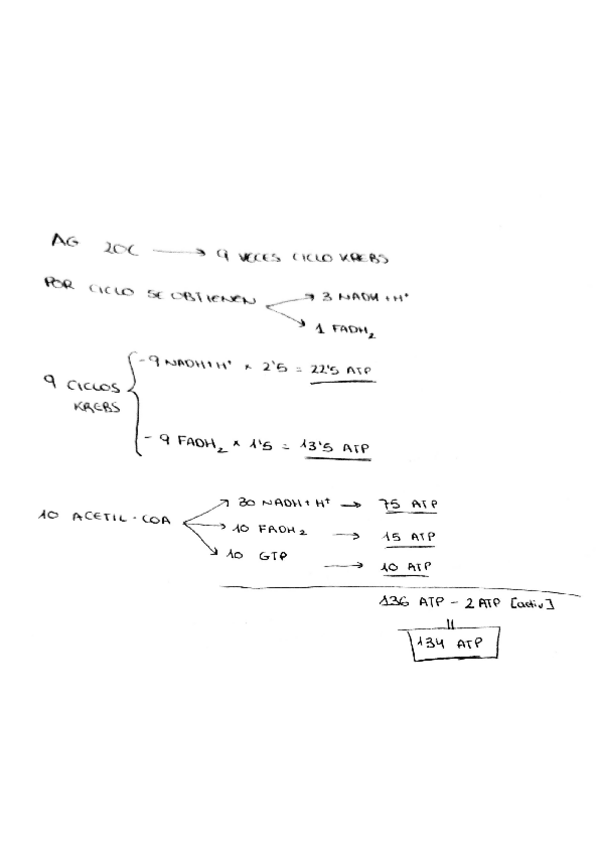 AG 20C → 9 VECES CICLO KREBS
POR CICLO SE OBTIENEN → 3 NADH+H⁺
→ 1 FADH₂
9 CICLOS KREBS
- 9 NADH+H⁺ x 2'5 = 22'5 ATP
- 9 FADH₂ x 1'5 = 13'5 ATP
10 ACETIL-COA → 30 NADH+H⁺ → 75 ATP
→ 10 FADH₂ → 15 ATP
→ 10 GTP → 10 ATP
136 ATP - 2 ATP [activ]
=
134 ATP